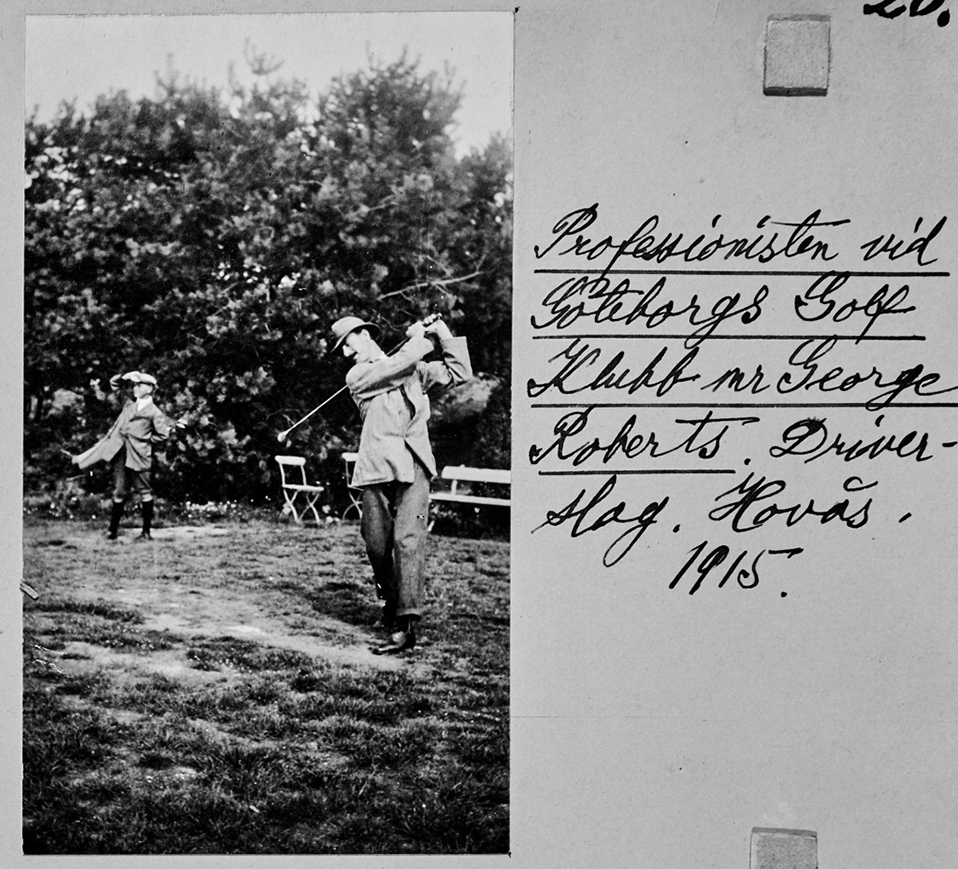 20.
Professionisten vid
Göteborgs Golf
Klubb mr George
Roberts. Driver-
slag. Hovås.
1915.